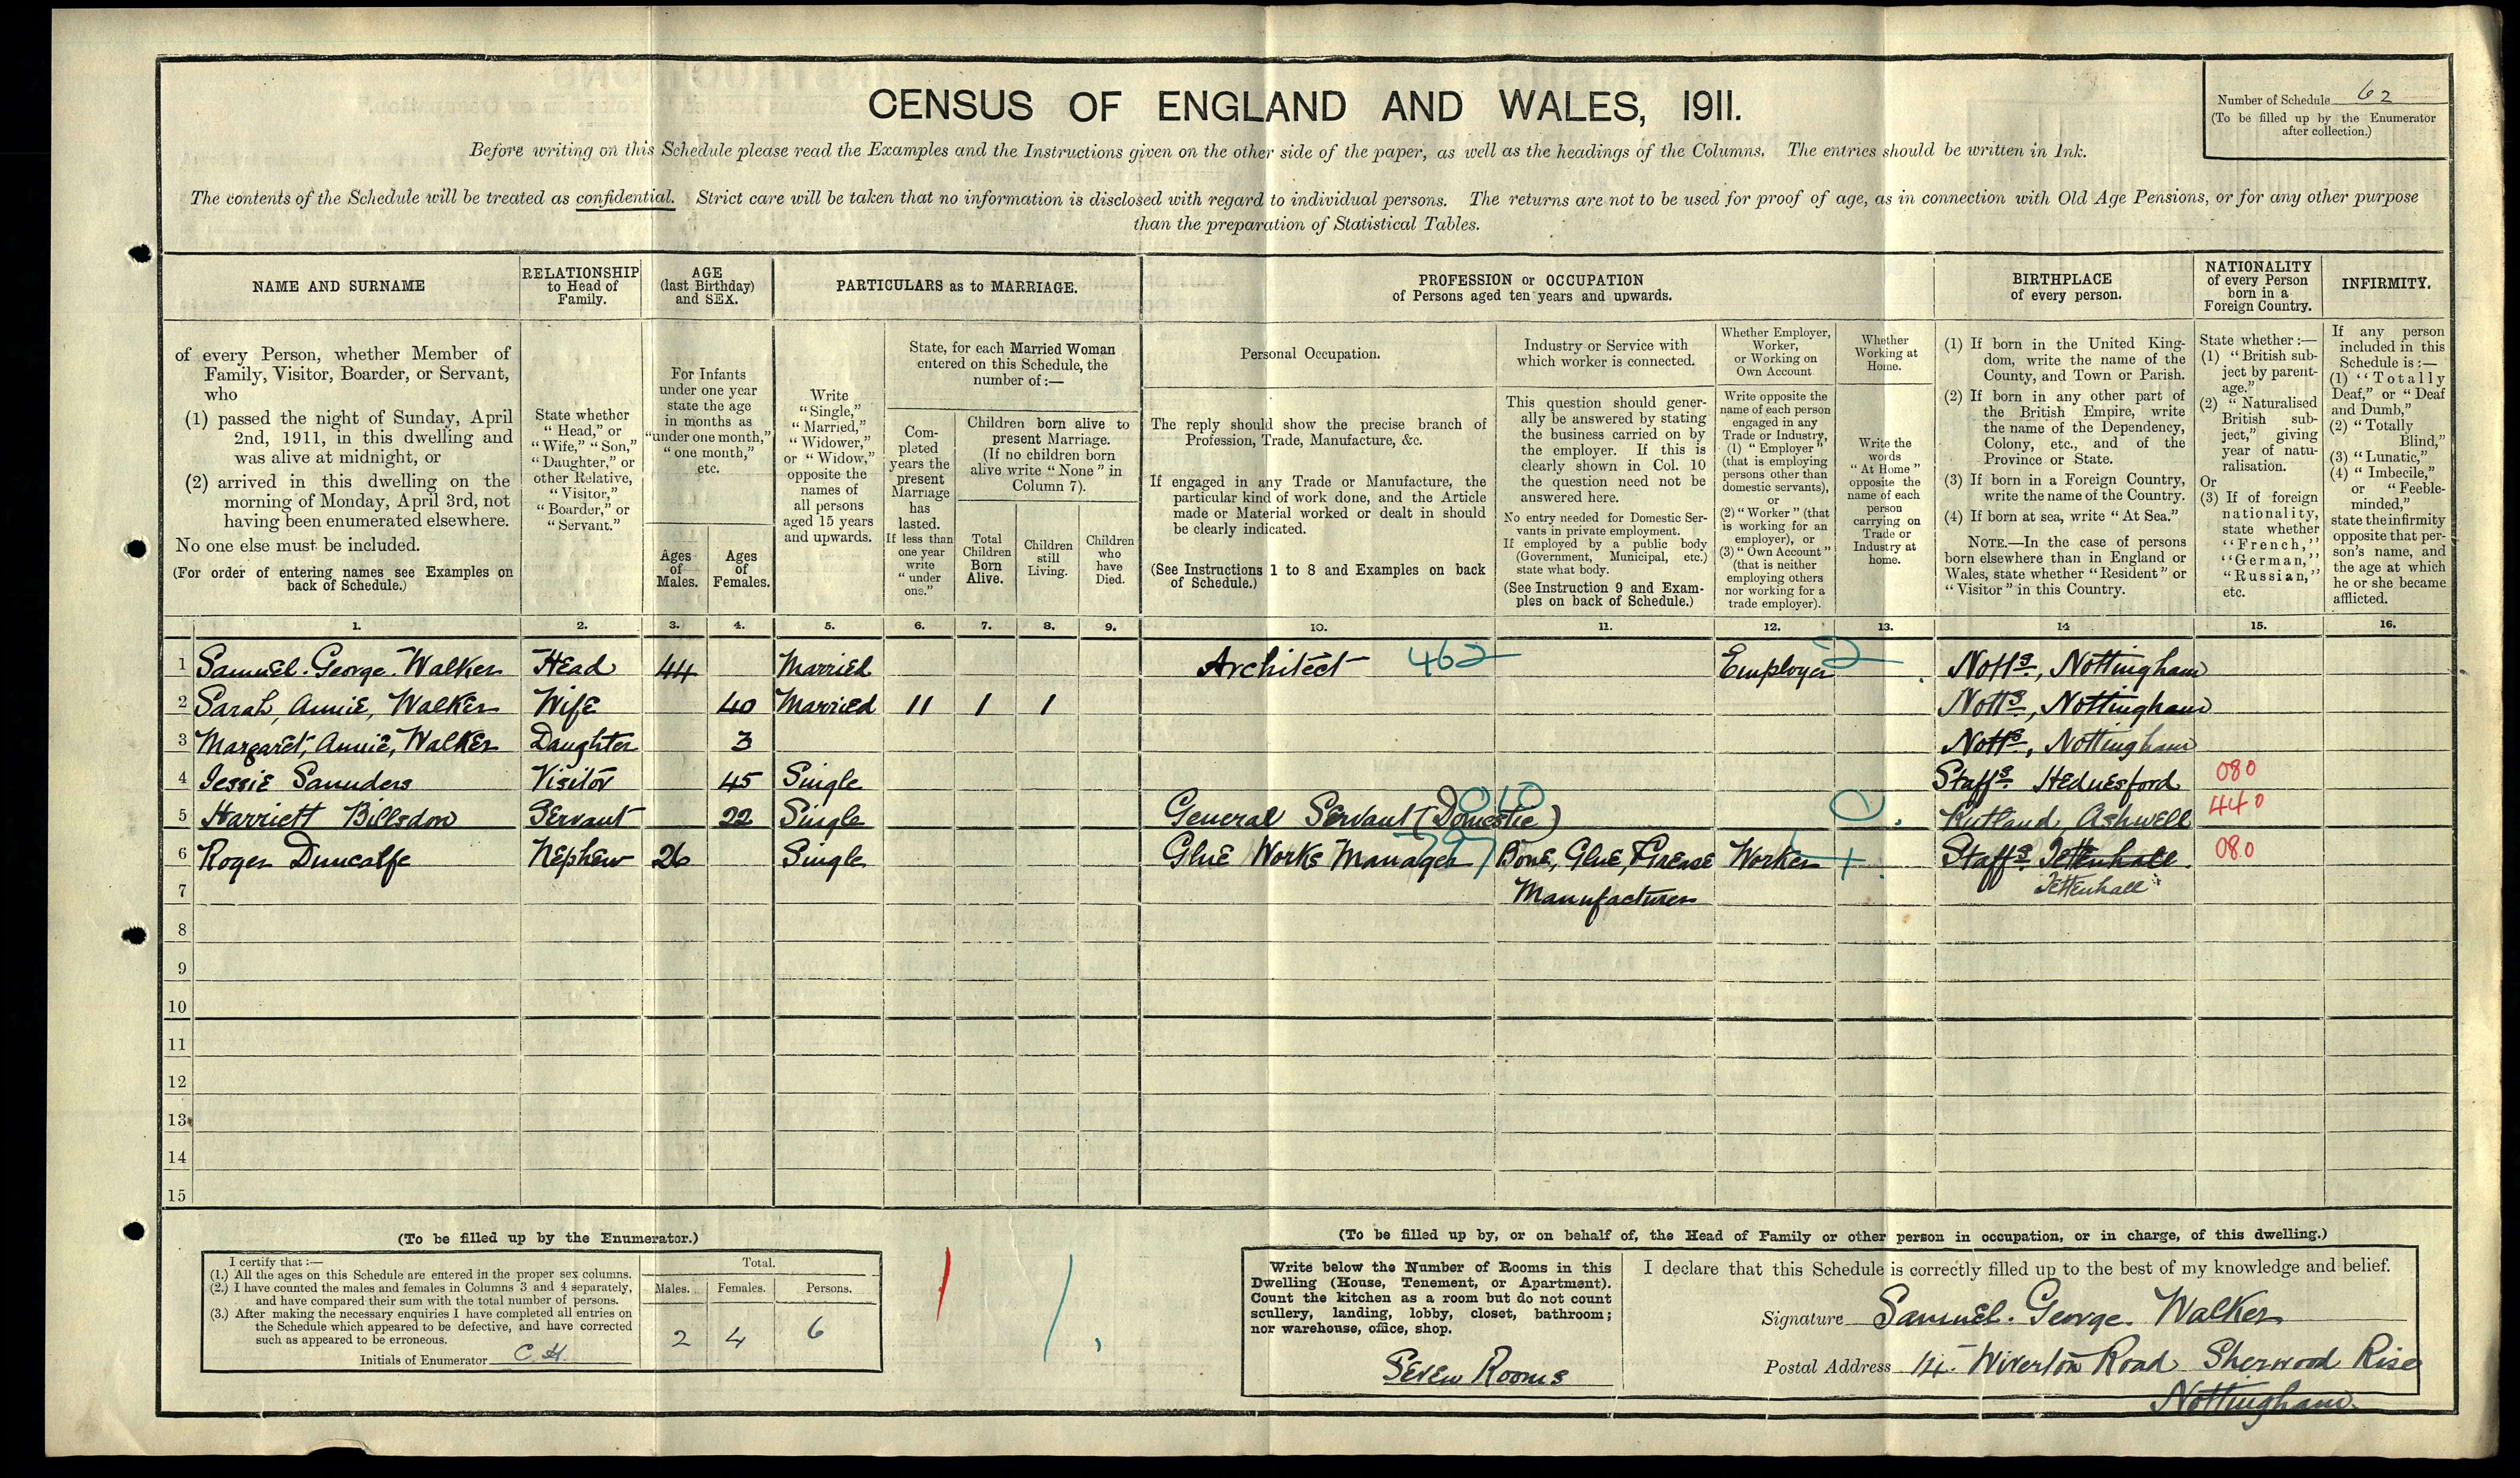 CENSUS OF ENGLAND AND WALES, 1911.
Number of Schedule 62
(To be filled up by the Enumerator
after collection.)
Before writing on this Schedule please read the Examples and the Instructions given on the other side of the paper, as well as the headings of the Columns. The entries should be written in Ink.
The contents of the Schedule will be treated as confidential. Strict care will be taken that no information is disclosed with regard to individual persons. The returns are not to be used for proof of age, as in connection with Old Age Pensions, or for any other purpose
than the preparation of Statistical Tables.
NAME AND SURNAME
of every Person, whether Member of
Family, Visitor, Boarder, or Servant,
who
(1) passed the night of Sunday, April
2nd, 1911, in this dwelling and
was alive at midnight, or
(2) arrived in this dwelling on the
morning of Monday, April 3rd, not
having been enumerated elsewhere.
No one else must be included.
(For order of entering names see Examples on
back of Schedule.)
RELATIONSHIP
to Head of
Family.
State whether
"Head," or
"Wife," "Son,"
"Daughter," or
other Relative,
"Visitor,"
"Boarder," or
"Servant."
AGE
(last Birthday)
and SEX.
For Infants
under one year
state the age
in months as
"under one month,"
"one month,"
etc.
Ages
of
Males.
Ages
of
Females.
PARTICULARS as to MARRIAGE.
Write
"Single,"
"Married,"
"Widower,"
or "Widow,"
opposite the
names of
all persons
aged 15 years
and upwards.
State, for each Married Woman
entered on this Schedule, the
number of:—
Com-
pleted
years the
present
Marriage
has
lasted.
If less than
one year
write
"under
one."
Children born alive to
present Marriage.
(If no children born
alive write "None" in
Column 7).
Total
Children
Born
Alive.
Children
still
Living.
Children
who
have
Died.
PROFESSION or OCCUPATION
of Persons aged ten years and upwards.
Personal Occupation.
The reply should show the precise branch of
Profession, Trade, Manufacture, &c.
If engaged in any Trade or Manufacture, the
particular kind of work done, and the Article
made or Material worked or dealt in should
be clearly indicated.
(See Instructions 1 to 8 and Examples on back
of Schedule.)
Industry or Service with
which worker is connected.
This question should gener-
ally be answered by stating
the business carried on by
the employer. If this is
clearly shown in Col. 10
the question need not be
answered here.
No entry needed for Domestic Ser-
vants in private employment.
If employed by a public body
(Government, Municipal, etc.)
state what body.
(See Instruction 9 and Exam-
ples on back of Schedule.)
Whether Employer,
Worker,
or Working on
Own Account
Write opposite the
name of each person
engaged in any
Trade or Industry,
(1) "Employer"
(that is employing
persons other than
domestic servants),
or
(2) "Worker" (that
is working for an
employer), or
(3) "Own Account"
(that is neither
employing others
nor working for a
trade employer).
Whether
Working at
Home.
Write the
words
"At Home"
opposite the
name of each
person
carrying on
Trade or
Industry at
home.
BIRTHPLACE
of every person.
(1) If born in the United King-
dom, write the name of the
County, and Town or Parish.
(2) If born in any other part of
the British Empire, write
the name of the Dependency,
Colony, etc., and of the
Province or State.
(3) If born in a Foreign Country,
write the name of the Country.
(4) If born at sea, write "At Sea."
NOTE.—In the case of persons
born elsewhere than in England or
Wales, state whether "Resident" or
"Visitor" in this Country.
NATIONALITY
of every Person
born in a
Foreign Country.
State whether:—
(1) "British sub-
ject by parent-
age,"
(2) "Naturalised
British sub-
ject," giving
year of natu-
ralisation.
Or
(3) If of foreign
nationality,
state whether
"French,"
"German,"
"Russian,"
etc.
INFIRMITY.
If any person
included in this
Schedule is:—
(1) "Totally
Deaf," or "Deaf
and Dumb,"
(2) "Totally
Blind,"
(3) "Lunatic,"
(4) "Imbecile,"
or "Feeble-
minded,"
state the infirmity
opposite that per-
son's name, and
the age at which
he or she became
afflicted.
1. 2. 3. 4. 5. 6. 7. 8. 9. 10. 11. 12. 13. 14 15. 16.
1 Samuel. George. Walker Head 44 Married Architect 462 Employer 2 Notts, Nottingham
2 Sarah, Annie, Walker Wife 40 Married 11 1 1 Notts, Nottingham
3 Margaret, Annie, Walker Daughter 3 Notts, Nottingham
4 Jessie Saunders Visitor 45 Single Staffs. Hednesford 080
5 Harriett Billsdon Servant 22 Single General Servant (Domestic) 010 0 Rutland, Ashwell 440
6 Roger Duncalfe Nephew 26 Single Glue Works Manager 797 Bone, Glue, Grease Worker 1 Staffs. Tettenhall 080
7 Manufacturer Tettenhall
8
9
10
11
12
13
14
15
(To be filled up by the Enumerator.)
I certify that:—
(1.) All the ages on this Schedule are entered in the proper sex columns.
(2.) I have counted the males and females in Columns 3 and 4 separately,
and have compared their sum with the total number of persons.
(3.) After making the necessary enquiries I have completed all entries on
the Schedule which appeared to be defective, and have corrected
such as appeared to be erroneous.
Initials of Enumerator C H.
Total.
Males. Females. Persons.
2 4 6
(To be filled up by, or on behalf of, the Head of Family or other person in occupation, or in charge, of this dwelling.)
Write below the Number of Rooms in this
Dwelling (House, Tenement, or Apartment).
Count the kitchen as a room but do not count
scullery, landing, lobby, closet, bathroom;
nor warehouse, office, shop.
Seven Rooms
I declare that this Schedule is correctly filled up to the best of my knowledge and belief.
Signature Samuel. George. Walker
Postal Address 14. Wiverton Road Sherwood Rise
Nottingham.